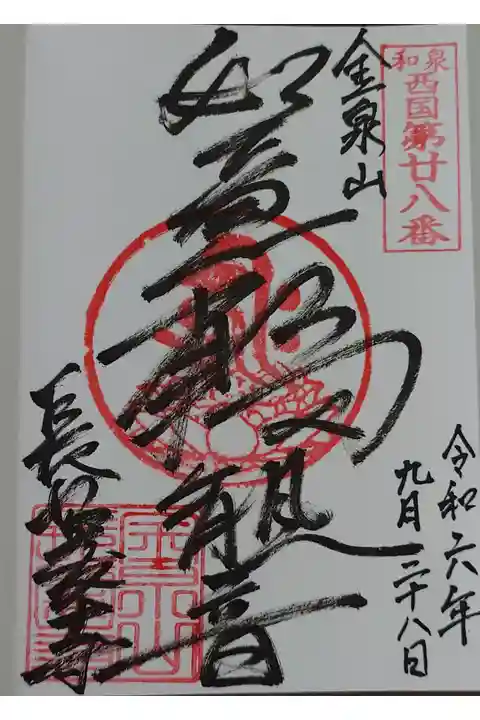 和泉
西国第廿八番
金泉山
如意輪観音
長慶寺
令和六年
九月二十八日